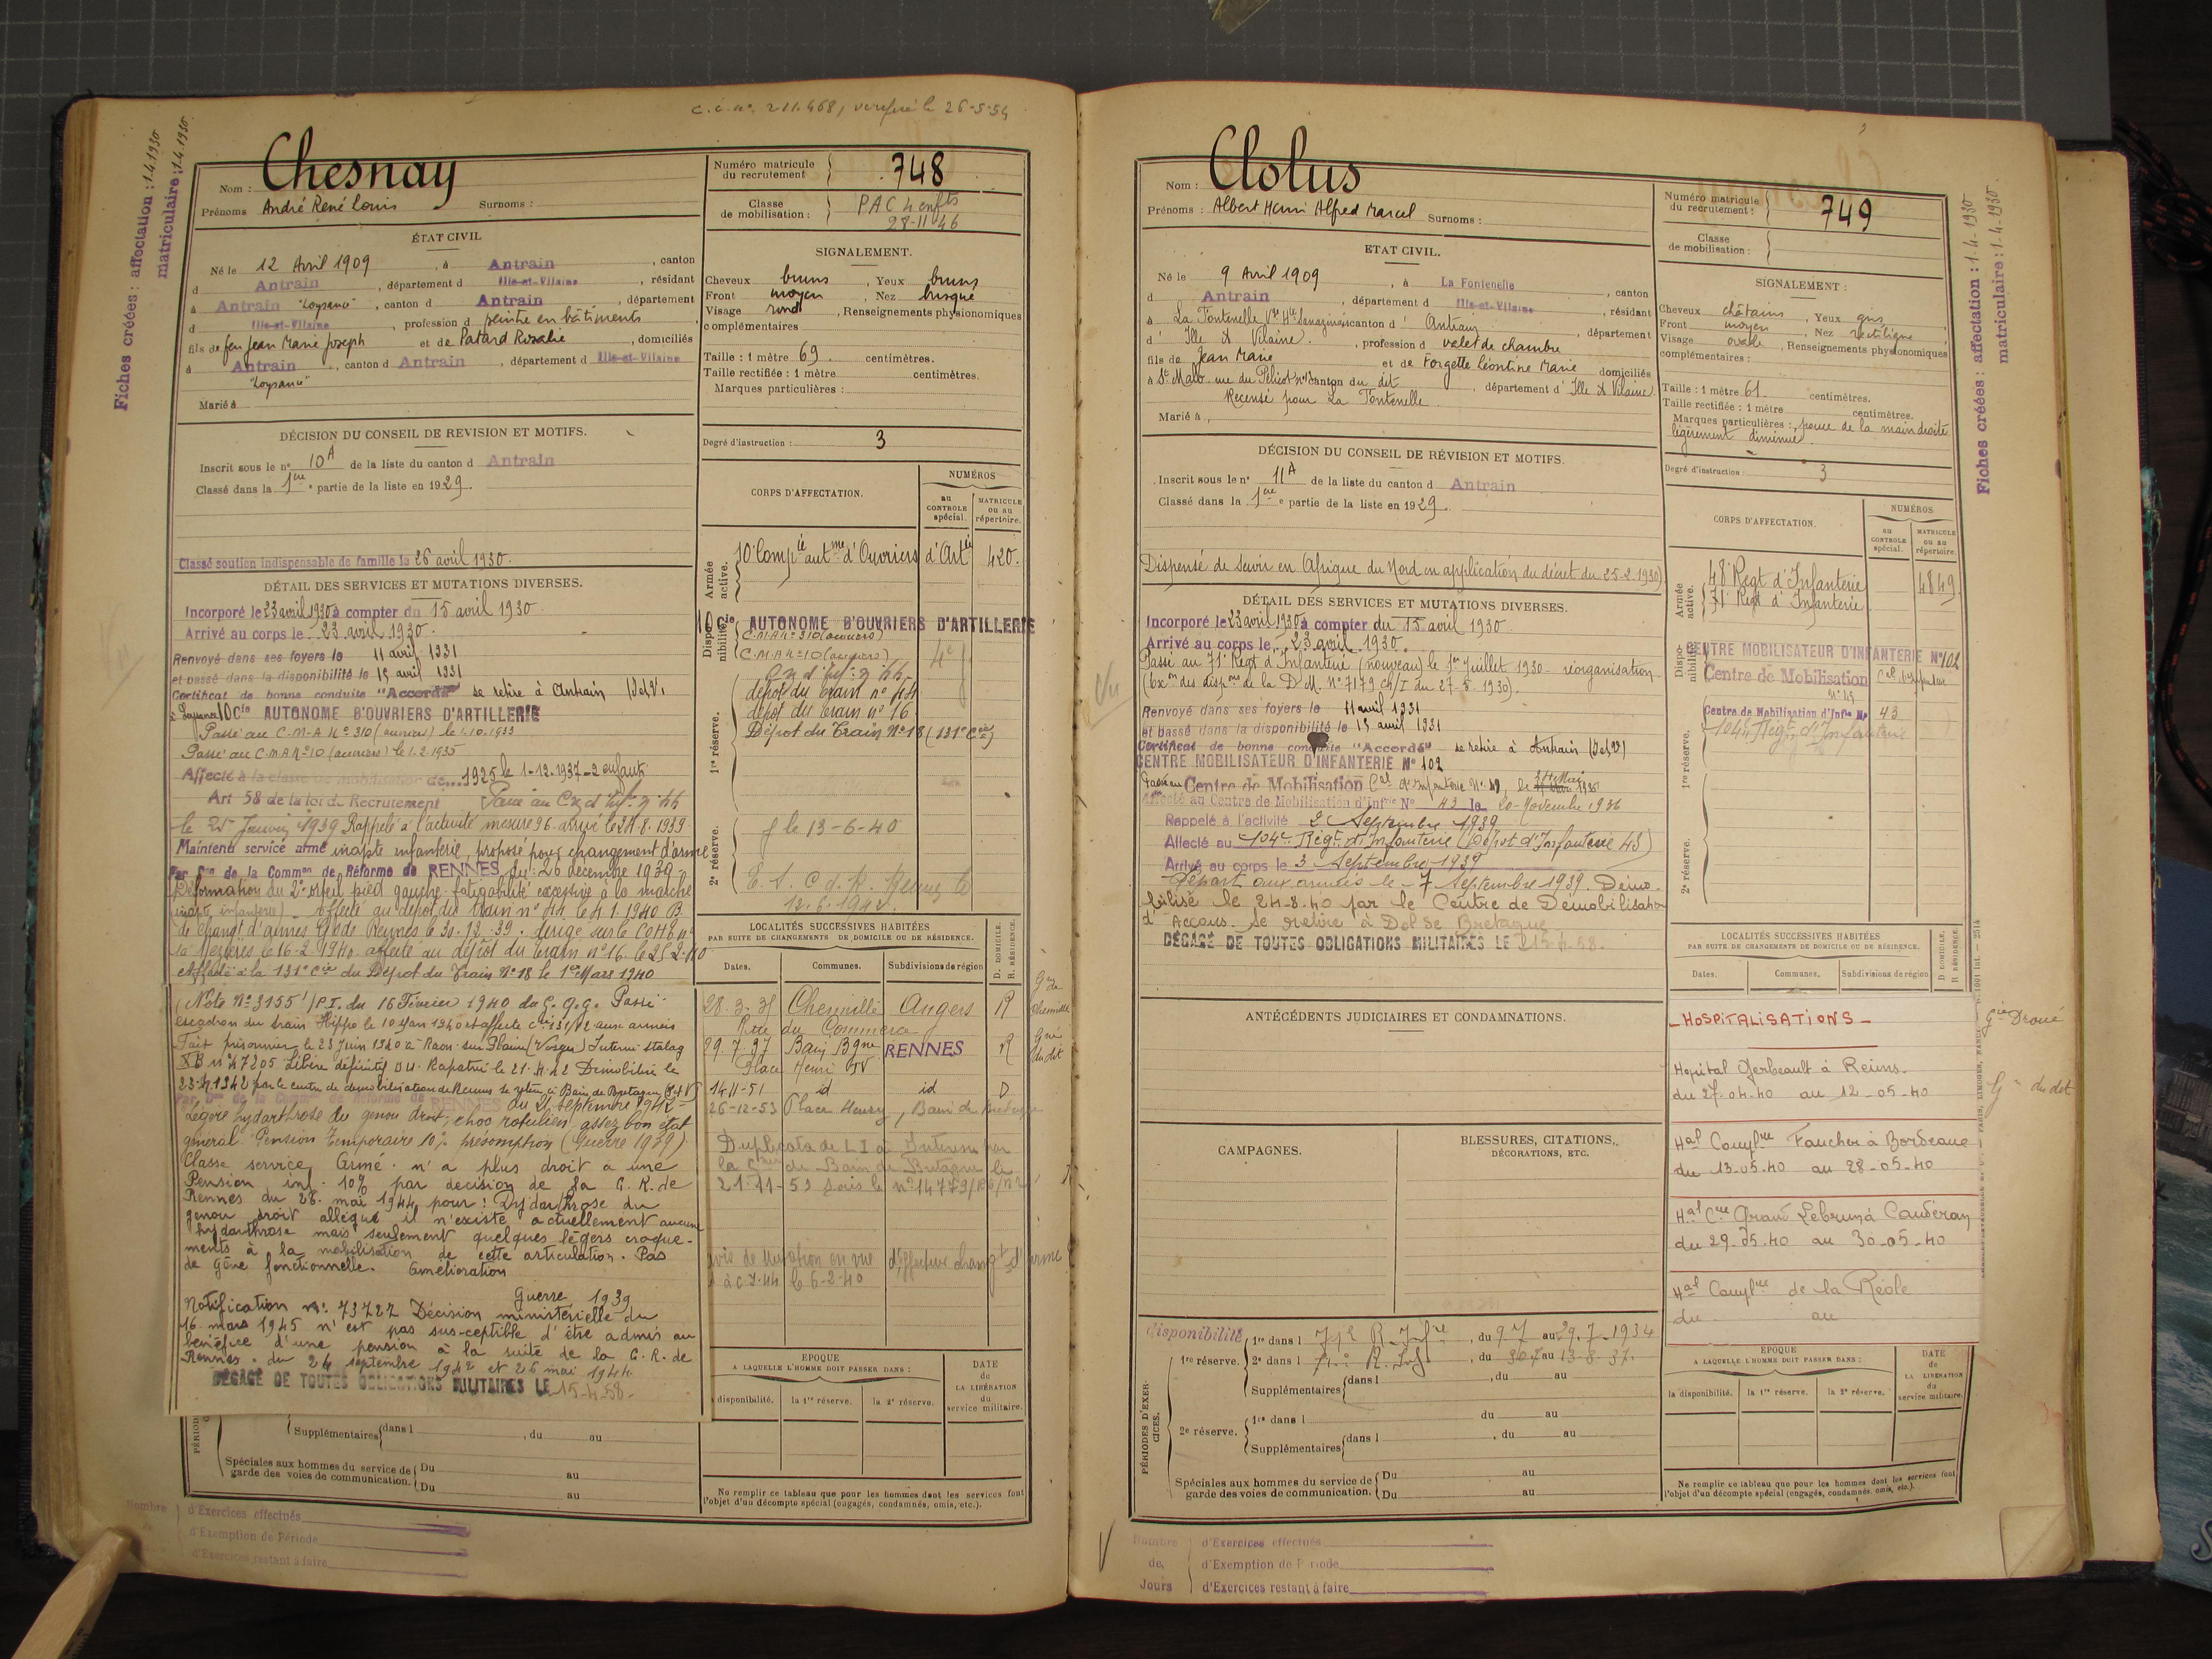 Fiches créées : affectation : 1.4.1930
matriculaire : 1.4.1930
c.i. n° 211.468, le 26-5-54
Nom : Chesnay
Prénoms André René Louis Surnoms :
Numéro matricule du recrutement 748
Classe de mobilisation : PAC 4 enfts
28-11-46
ÉTAT CIVIL
Né le 12 Avril 1909, à Antrain, canton
d Antrain, département d Ille-et-Vilaine, résidant
à Antrain "Loysance", canton d Antrain, département
d Ille-et-Vilaine, profession d peintre en bâtiments
fils de feu Jean Marie Joseph et de Patard Rosalie, domiciliés
à Antrain, canton d Antrain, département d Ille-et-Vilaine
"Loysance"
Marié à
SIGNALEMENT.
Cheveux bruns, Yeux bruns
Front moyen, Nez busqué
Visage rond, Renseignements physionomiques
complémentaires
Taille : 1 mètre 69 centimètres.
Taille rectifiée : 1 mètre centimètres.
Marques particulières :
Degré d'instruction : 3
DÉCISION DU CONSEIL DE REVISION ET MOTIFS.
Inscrit sous le n° 10A de la liste du canton d Antrain
Classé dans la 1ère partie de la liste en 1929.
Classé soutien indispensable de famille le 26 avril 1930.
DÉTAIL DES SERVICES ET MUTATIONS DIVERSES.
Incorporé le 23 avril 1930 à compter du 15 avril 1930
Arrivé au corps le 23 avril 1930.
Renvoyé dans ses foyers le 11 avril 1931
et passé dans la disponibilité le 15 avril 1931
Certificat de bonne conduite "Accordé" se retire à Antrain (I et V)
à Loysance 10 Cie AUTONOME D'OUVRIERS D'ARTILLERIE
Passé au C-M-A N° 310 (ouvriers) le 1.10.1933
Passé au C-M-A N° 10 (ouvriers) le 1.2.1935
Affecté à la classe de mobilisation de 1925 le 1-12-1937 - 2 enfants
Art 58 de la loi de Recrutement
le 25 Janvier 1939 Rappelé à l'activité mesure 96. arrivé le 24.8.1939
Maintenu service armé inapte infanterie, proposé pour changement d'arme
Par Don de la Common de Réforme de RENNES du 26 décembre 1939
Déformation du 2e orteil pied gauche fatigabilité excessive à la marche
(inapte infanterie) - affecté au dépôt du train n° 44 le 4.1.1940
de changt d'armes de Rennes le 30.12.39. dirigé sur le
Mézières le 16-2-1940. affecté au dépôt du train n° 16. le 25-2-40
Affecté à la 131e Cie du Dépôt du Train N° 18 le 1er Mars 1940
(Note N° 3155 1/P.I. du 16 Février 1940 du G.Q.G. Passé
escadron du train Hippo le 10 Mars 1940 et affecté Cie 131/V2 aux armées
Fait prisonnier le 23 Juin 1940 à Raon-sur-Plaine (Vosges) Interné stalag
XB n° 47205 Libéré définitif Rapatrié le 21.4.42 Démobilisé le
23.4.1942 par le centre de démobilisation de Rennes se retire à Bain de Bretagne (I et V)
Par Don de la Common de Réforme de RENNES du 24 septembre 1942
Légère hydarthrose du genou droit, choc rotulien, assez bon état
général Pension temporaire 10% présomption (Guerre 1939)
Classé service Armé. n'a plus droit à une
Pension inf. 10% par décision de la C.R. de
Rennes du 28 mai 1944 pour : Hydarthrose du
genou droit allégué il n'existe actuellement aucune
hydarthrose mais seulement quelques légers craque-
ments à la mobilisation de cette articulation. Pas
de gêne fonctionnelle. Amélioration
Guerre 1939
Notification N° 73722 Décision ministérielle du
16 mars 1945 n'est pas sus-ceptible d'être admis au
bénéfice d'une pension à la suite de la C.R. de
Rennes. du 24 septembre 1942 et 26 mai 1944.
DÉGAGÉ DE TOUTES OBLIGATIONS MILITAIRES LE 15-4-58.
PÉRIODE
Supplémentaires dans l , du au
Spéciales aux hommes du service de garde des voies de communication. Du au
Du au
Nombre
d'Exercices effectués
d'Exemption de Période
d'Exercices restant à faire
CORPS D'AFFECTATION.
NUMÉROS
au CONTROLE spécial.
MATRICULE ou au répertoire.
Armée active.
10e Compie autme d'Ouvriers d'Artie 420.
Disponibilité
10 Cie AUTONOME D'OUVRIERS D'ARTILLERIE
C.M.A N° 310 (ouvriers)
C.M.A N° 10 (ouvriers)
1re réserve.
dépôt du train n° 44
dépôt du train n° 16
Dépôt du Train N° 18 (131e Cie)
2e réserve.
f le 13-6-40
12.6.1942.
LOCALITÉS SUCCESSIVES HABITÉES
PAR SUITE DE CHANGEMENTS DE DOMICILE OU DE RÉSIDENCE.
D. DOMICILE. R. RÉSIDENCE.
Dates. Communes. Subdivisions de région
28.3.35 Chemillé Angers R Gie de Chemillé
Rue du Commerce
29.7.37 Bain Bgne RENNES R Gie dudit
Place Henri IV
14-11-51 id id D
26-12-53 Place Henry, Bain de Bretagne
Duplicata de L I
la Gie de Bain de Bretagne le
21-11-53 sous le n° 14773
avis de mutation en vue d'affective changt d'arme
le 6-2-40
EPOQUE
A LAQUELLE L'HOMME DOIT PASSER DANS :
disponibilité. la 1re réserve. la 2e réserve.
DATE de LA LIBÉRATION du service militaire.
Ne remplir ce tableau que pour les hommes dont les services font
l'objet d'un décompte spécial (engagés, condamnés, omis, etc.).
Nom : Clolus
Prénoms : Albert Henri Alfred Marcel Surnoms :
Numéro matricule du recrutement : 749
Classe de mobilisation :
Fiches créées : affectation : 1.4-1930
matriculaire : 1.4-1930.
ETAT CIVIL.
Né le 9 Avril 1909, à La Fontenelle, canton
d Antrain, département d Ille-et-Vilaine, résidant
à La Fontenelle canton d' Antrain
d' Ille & Vilaine, département, profession d valet de chambre
fils de Jean Marie et de Forgette Léontine Marie domiciliés
à St Malo rue du Pélicot canton du dit, département d' Ille & Vilaine.
Recensé pour La Fontenelle
Marié à
SIGNALEMENT :
Cheveux châtains, Yeux gris
Front moyen, Nez rectiligne
Visage ovale, Renseignements physionomiques
complémentaires :
Taille : 1 mètre 61 centimètres.
Taille rectifiée : 1 mètre centimètres.
Marques particulières : pouce de la main droite
légèrement diminué.
Degré d'instruction : 3
DÉCISION DU CONSEIL DE RÉVISION ET MOTIFS.
Inscrit sous le n° 11A de la liste du canton d Antrain
Classé dans la 1ère partie de la liste en 1929.
Dispensé de servir en Afrique du Nord en application du décret du 25-2-1930)
DÉTAIL DES SERVICES ET MUTATIONS DIVERSES.
Incorporé le 23 avril 1930 à compter du 15 avril 1930
Arrivé au corps le 23 avril 1930.
Passé au 71e Régt d'Infanterie (nouveau) le 1er Juillet 1930 - réorganisation
(Exon des dispons de la D.M. N° 7179 Ch/I du 27-5-1930).
Vu
Renvoyé dans ses foyers le 11 avril 1931
et passé dans la disponibilité le 15 avril 1931
Certificat de bonne conduite "Accordé" se retire à Antrain (I et V)
CENTRE MOBILISATEUR D'INFANTERIE N° 102
Passé au Centre de Mobilisation Cal d'Infanterie N° 49, le
Affecté au Centre de Mobilisation d'Infrie N° 43 le 20 Novembre 1936
Rappelé à l'activité 2 Septembre 1939
Affecté au 104e Régt d'Infanterie (Dépôt d'Infanterie 43)
Arrivé au corps le 3 Septembre 1939
Départ aux armées le 7 Septembre 1939. Démo-
bilisé le 24-8-40 par le Centre de Démobilisation
d' Accous. Se retire à Dol de Bretagne
DÉGAGÉ DE TOUTES OBLIGATIONS MILITAIRES LE 15-4-58.
ANTÉCÉDENTS JUDICIAIRES ET CONDAMNATIONS.
CAMPAGNES.
BLESSURES, CITATIONS,
DÉCORATIONS, ETC.
PÉRIODES D'EXERCICES.
disponibilité 1re dans l 71e R. Infie, du 9.7 au 29.7.1934
1re réserve. 2e dans l 71e R. Inf, du 30.7 au 13-8-37.
Supplémentaires dans l , du au
2e réserve. 1re dans l du au
Supplémentaires dans l , du au
Spéciales aux hommes du service de garde des voies de communication. Du au
Du au
Nombre de Jours
d'Exercices effectués
d'Exemption de Période
d'Exercices restant à faire
CORPS D'AFFECTATION.
NUMÉROS
au CONTROLE spécial.
MATRICULE ou au répertoire.
Armée active.
48e Régt d'Infanterie 4849
71e Régt d'Infanterie
Disponibilité
CENTRE MOBILISATEUR D'INFANTERIE N° 102
Centre de Mobilisation Cal d'Infanterie
N° 49
Centre de Mobilisation d'Infrie N° 43
1re réserve.
104e Régt d'Infanterie
2e réserve.
LOCALITÉS SUCCESSIVES HABITÉES
PAR SUITE DE CHANGEMENTS DE DOMICILE OU DE RÉSIDENCE.
D. DOMICILE. R. RÉSIDENCE.
Dates. Communes. Subdivisions de région
- HOSPITALISATIONS -
Hôpital Gerbeault à Reims.
du 27.04.40 au 12-05-40
Hal Complre Faucher à Bordeaux
du 13-05.40 au 28-05-40
Hal Cre Grand Lebrun à Caudéran
du 29-05.40 au 30-05-40
Hal Complre de la Réole
du au
Gie Droué
G du dit
EPOQUE
A LAQUELLE L'HOMME DOIT PASSER DANS :
la disponibilité. la 1re réserve. la 2e réserve.
DATE de LA LIBÉRATION du service militaire.
Ne remplir ce tableau que pour les hommes dont les services font
l'objet d'un décompte spécial (engagés, condamnés, omis, etc.).